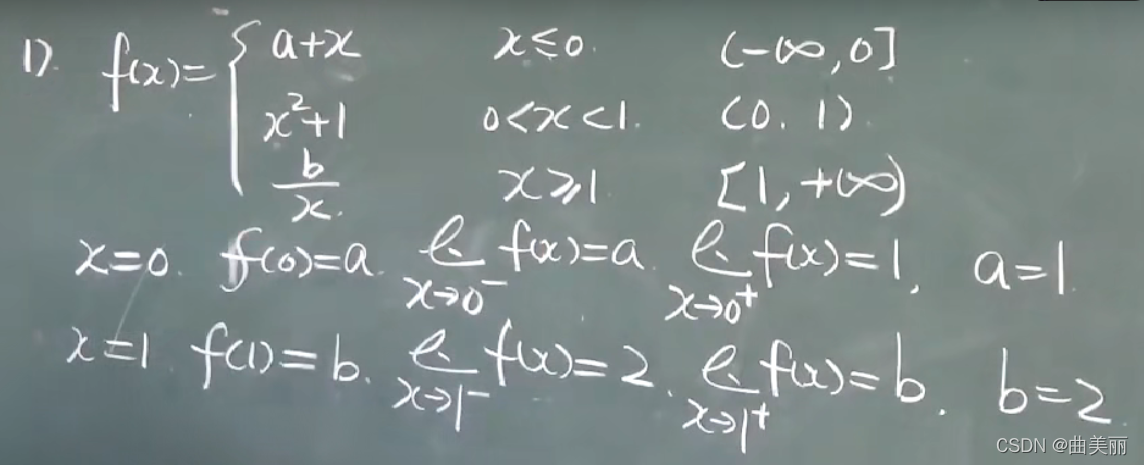 1). f(x)={ a+x x≤0. (-∞,0]
x²+1 0<x<1. (0.1)
b/x. x≥1 [1,+∞)
x=0. f(0)=a. lim x→0⁻ f(x)=a. lim x→0⁺ f(x)=1. a=1
x=1. f(1)=b. lim x→1⁻ f(x)=2. lim x→1⁺ f(x)=b. b=2.
CSDN @曲美丽